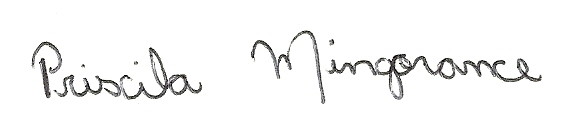 Priscila Mingorance